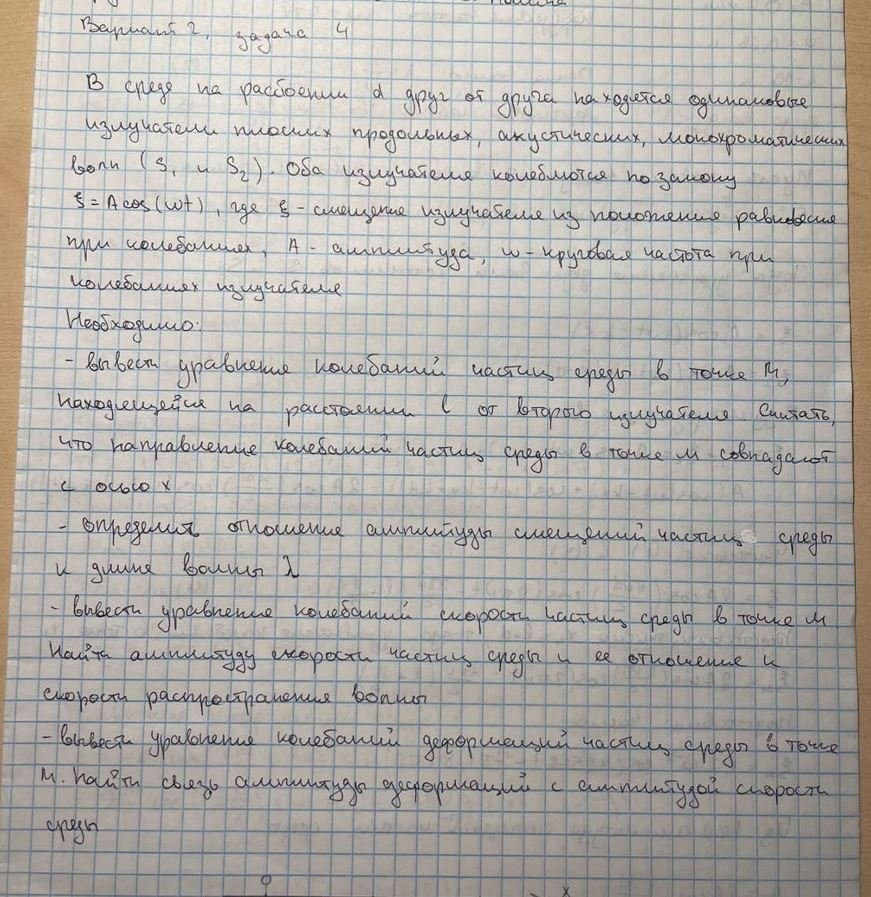 Вариант 2, задача 4
В среде на расстоянии d друг от друга находятся одинаковые
излучатели плоских продольных, акустических, монохроматических
волн (S₁ и S₂). Оба излучателя колеблются по закону
ξ = A cos(ωt), где ξ - смещение излучателя из положения равновесия
при колебаниях, A - амплитуда, ω - круговая частота при
колебаниях излучателя
Необходимо:
- вывести уравнение колебаний частиц среды в точке M,
находящейся на расстоянии l от второго излучателя. Считать,
что направление колебаний частиц среды в точке M совпадают
с осью x
- определить отношение амплитуды смещений частиц среды
к длине волны λ
- вывести уравнение колебаний скорости частиц среды в точке M.
Найти амплитуду скорости частиц среды и ее отношение к
скорости распространения волны
- вывести уравнение колебаний деформаций частиц среды в точке
M. Найти связь амплитуды деформаций с амплитудой скорости
среды
x